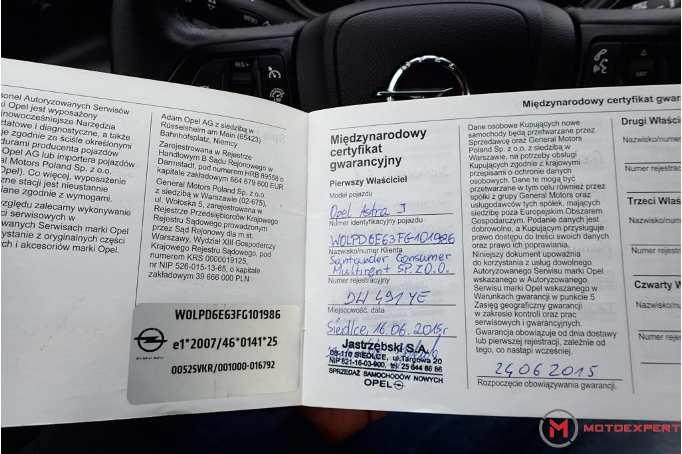 sonel Autoryzowanych Serwisów
i Opel jest wyposażony
nowocześniejsze Narzędzia
ztatowe i diagnostyczne, a także
je zgodnie ze ściśle określonymi
durami producenta pojazdów
Opel AG lub importera pojazdów
al Motors Poland Sp. z o.o.
Opel). Co więcej, wyposażenie
zne stacji jest nieustannie
iane zgodnie z wymogami.
względu zalecamy wykonywanie
serwisowych w
wanych Serwisach marki Opel
ystanie z oryginalnych części
h i akcesoriów marki Opel.
Adam Opel AG z siedzibą w
Rüsselsheim am Main (65423)
Bahnhofsplatz, Niemcy
Zarejestrowana w Rejestrze
Handlowym B Sądu Rejonowego w
Darmstadt, pod numerem HRB 89558 o
kapitale zakładowym 664 679 600 EUR
General Motors Poland Sp. z o.o.
z siedzibą w Warszawie (02-675),
ul. Wołoska 5, zarejestrowana w
Rejestrze Przedsiębiorców Krajowego
Rejestru Sądowego prowadzonym
przez Sąd Rejonowy dla m.st.
Warszawy, Wydział XIII Gospodarczy
Krajowego Rejestru Sądowego, pod
numerem KRS 0000019125,
nr NIP 526-015-13-65, o kapitale
zakładowym 39 666 000 PLN
W0LPD6E63FG101986
e1*2007/46*0141*25
00525VKR/001000-016792
Międzynarodowy certyfikat gwaran
Międzynarodowy
certyfikat
gwarancyjny
Pierwszy Właściciel
Model pojazdu
Opel Astra J
Numer identyfikacyjny pojazdu
W0LPD6E63FG101986
Nazwisko/numer Klienta
Santander Consumer
Multirent SP. z O.O.
Numer rejestracyjny
DW 491YE
Miejscowość, data
Siedlce, 16.06.2015r
Jastrzębski S.A.
08-110 SIEDLCE, ul. Targowa 20
NIP 821-16-03-900, tel. 25 644 86 86
SPRZEDAŻ SAMOCHODÓW NOWYCH
OPEL
Dane osobowe Kupujących nowe
samochody będą przetwarzane przez
Sprzedawcę oraz General Motors
Poland Sp. z o.o. z siedzibą w
Warszawie, na potrzeby obsługi
Kupujących zgodnie z krajowymi
przepisami o ochronie danych
osobowych. Dane te mogą być
przetwarzane w tym celu również przez
spółki z grupy General Motors oraz
usługodawców tych spółek, mających
siedzibę poza Europejskim Obszarem
Gospodarczym. Podanie danych jest
dobrowolne, a Kupującym przysługuje
prawo dostępu do treści swoich danych
oraz prawo ich poprawiania.
Niniejszy dokument upoważnia
do korzystania z usług dowolnego
Autoryzowanego Serwisu marki Opel
wskazanego w
Warunkach gwarancji w punkcie 5
Zasięg geograficzny gwarancji
w zakresie kontroli oraz prac
serwisowych i gwarancyjnych.
Gwarancja obowiązuje od dnia dostawy
lub pierwszej rejestracji, zależnie od
tego, co nastąpi wcześniej.
24.06.2015
Rozpoczęcie obowiązywania gwarancji.
Drugi Właści
Nazwisko/nume
Numer rejestrac
Trzeci Właści
Nazwisko/nume
Numer rejestr
Czwarty W
Nazwisko/n
Numer reje
MOTOEXPERT